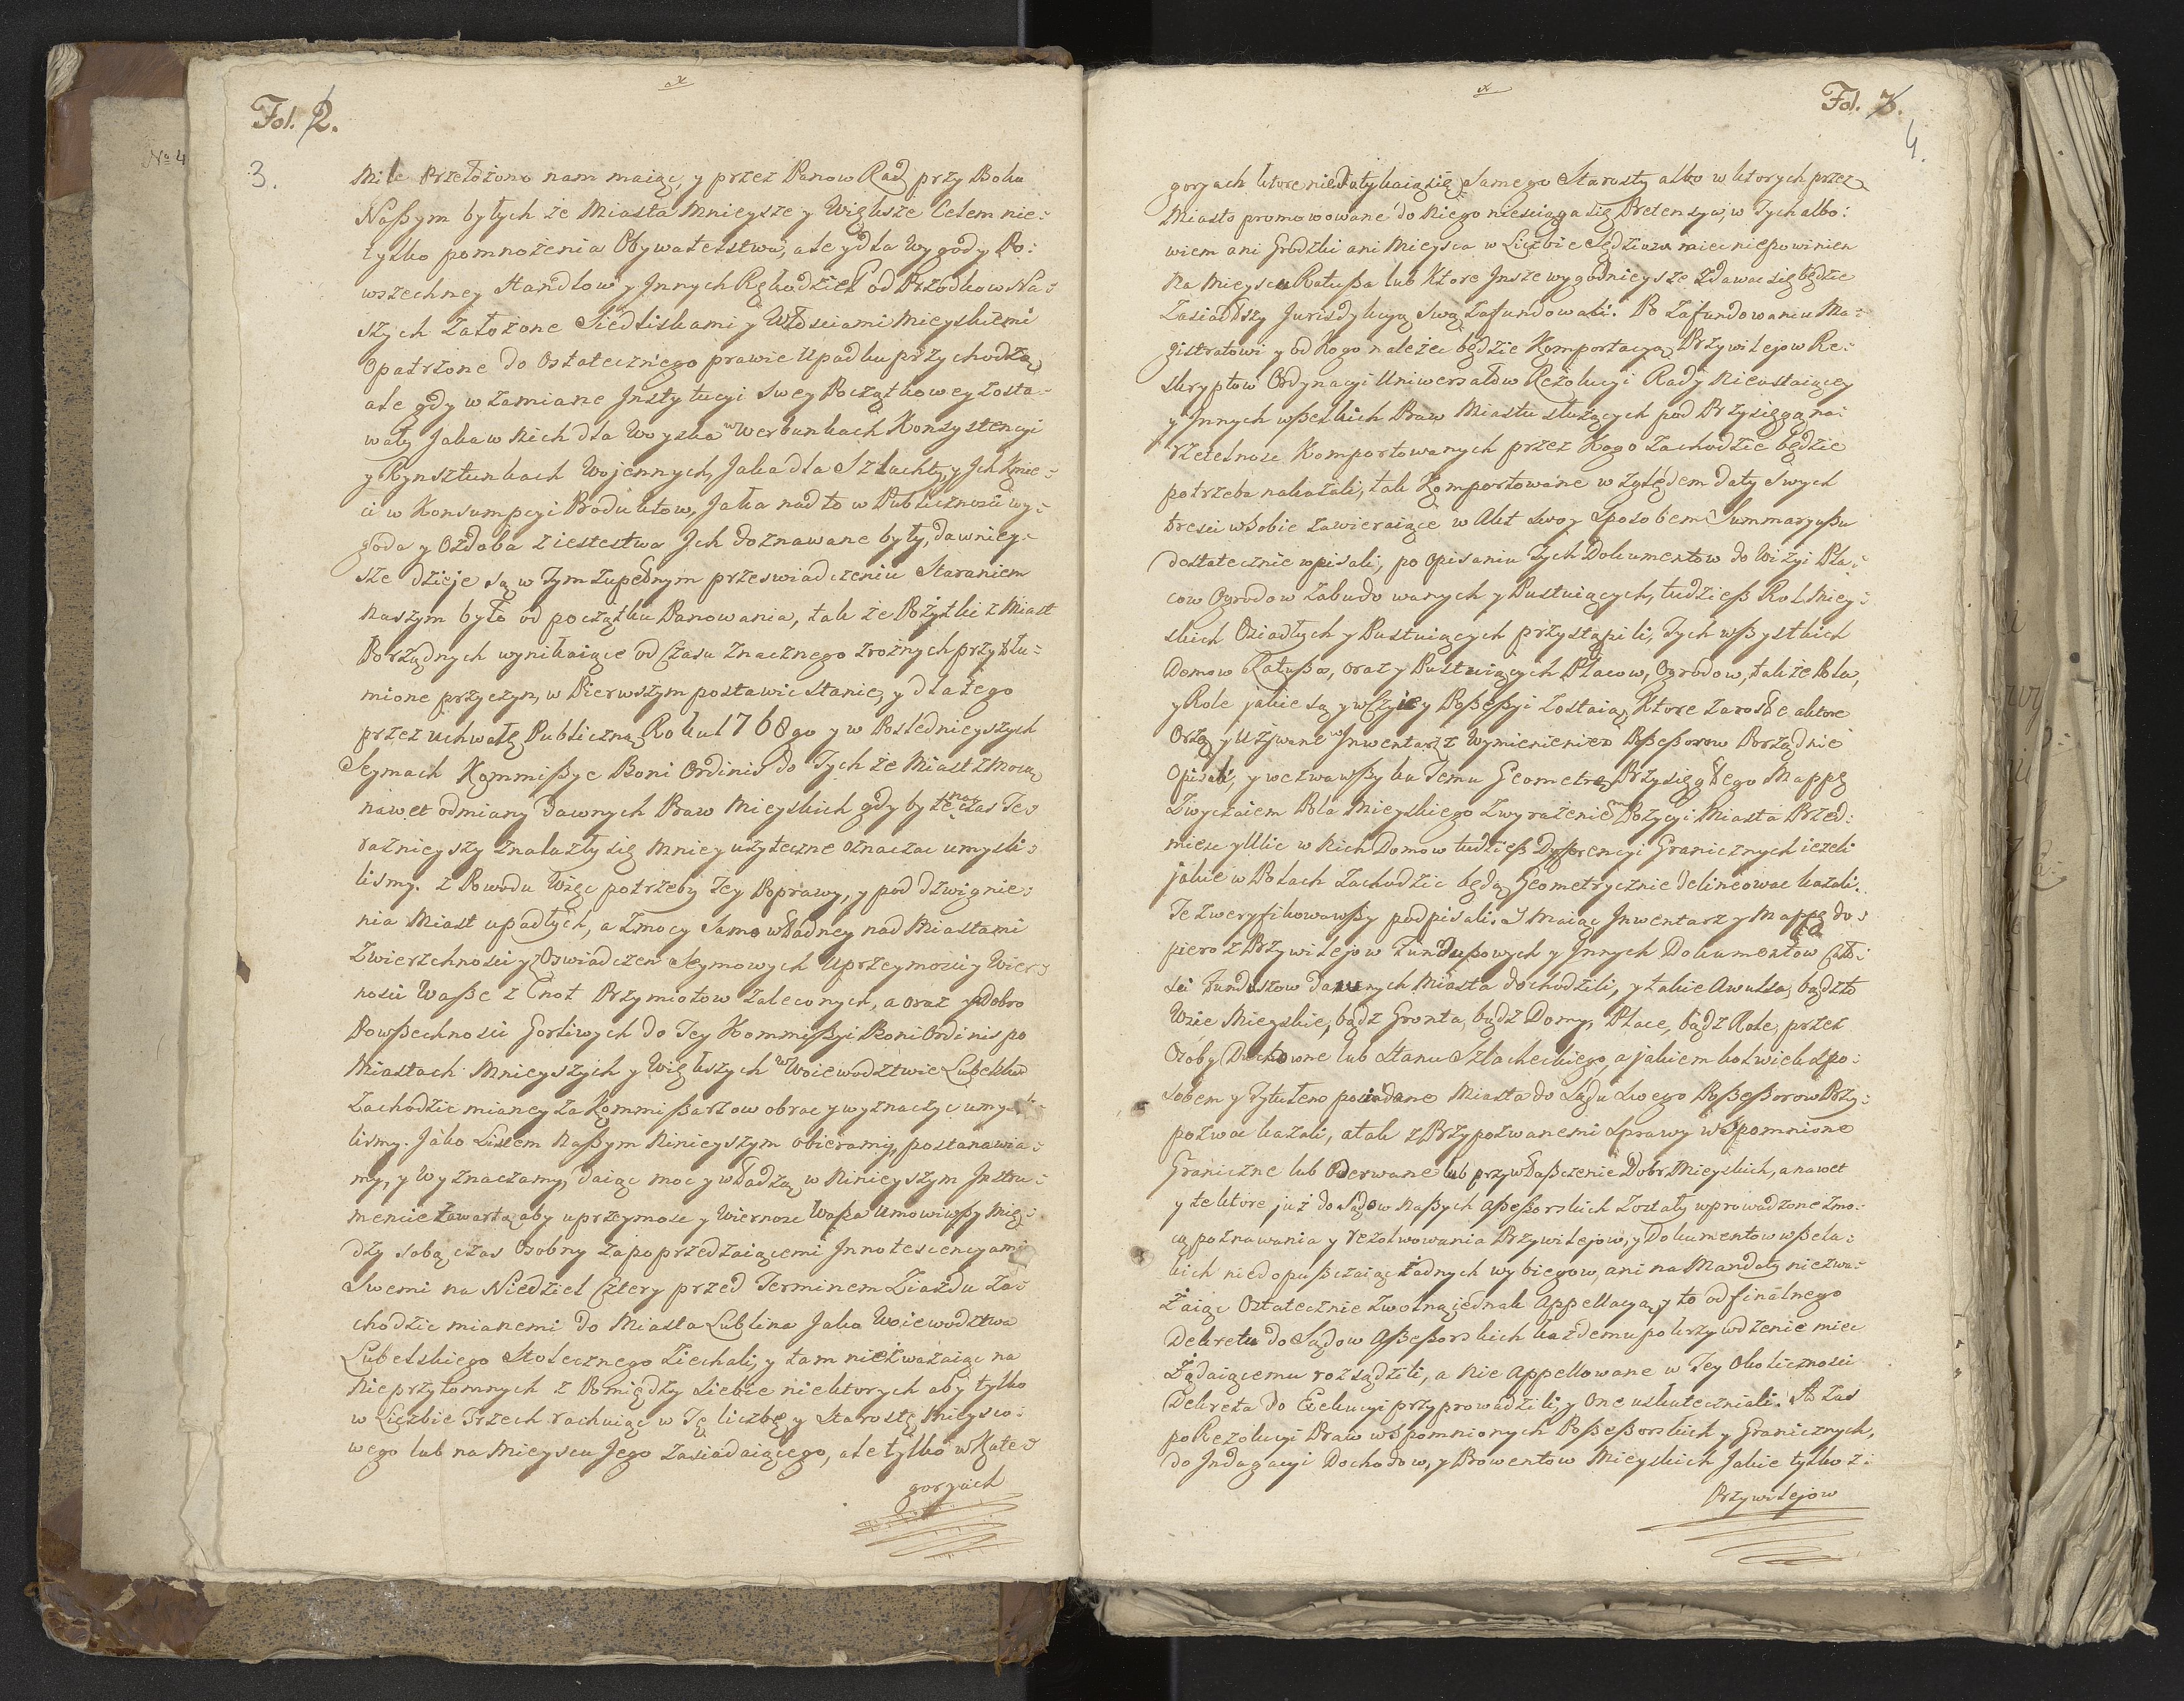 Fol. 2.
3.
Mile Przełożono nam maiąc, y przez Panow Rad przy Boku
Naßym byłych że Miasta Mnieysze y Więksże Celem nie-
tylko pomnożenia Obywatelstwa, ale y dla Wygody Po-
wszechney Handlow y Innych Rękodzieł od Przodkow Na-
szych Założone Siedliskami y Włosciami Mieyskiemi
Opatrzone do Ostatecznego prawie Upadku przychodzą
ale gdy w zamiane Instytucyi swey Początkowey zosta-
wały Jaka w Nich dla Woyska w Werbunkach Konsystencyi
y Rynsztunkach Wojennych, Jaka dla Szlachty y Ich Kmie-
ci w Konsumpcyi Produktow, Jaka nadto w Publicznosci wy-
goda y Ozdoba z iestestwa Ich doznawane były, dawniey-
sze dzieje są w Tym zupełnym przeswiadczeniu Staraniem
naszym było od początku Panowania, tak że Pożytki z Miast
Porządnych wynikaiące od Czasu Znacznego z rożnych przytłu-
mione przyczyn, w Pierwszym postawić Stanie, y dla tego
przez uchwałę Publiczną Roku 1768go y w Poslednieyszych
Seymach Kommißye Boni Ordinis do Tych że Miast z mocą
nawet odmiany dawnych Praw Mieyskich gdy by że na czas Te-
raznieyszy znalazły się mniey użyteczne oznaczac umysli-
lismy. z Powodu Więc potrzeby Tey Poprawy, y pod dzwignie-
nia Miast upadłych, a z mocy Samo władney nad Miastami
Zwierzchnosci y Oswiadczen Seymowych Uprzeymosci y Wier-
nosci Waße z Cnot Przymiotow zaleconych, a oraz y Dobro
Powßechnosci Gorliwych do Tey Kommißyi Boni Ordinis po
Miastach Mnieyszych y Większych w Woiewodztwie Lubelsko
Zachodzic mianey za Kommißarzow obrac y wyznaczyc umysli-
lismy. Jako Listem Naßym Ninieyszym obieramy, postanawia-
my, y Wyznaczamy, daiąc moc y władzą w Ninieyszym Instru-
mencie zawartą, aby uprzeymosc y Wiernosc Waßa Umowiwßy mię-
dzy sobą czas Osobny zapoprzedzaiącemi Innotescencyami
Swemi na Niedziel Cztery przed Terminem Ziazdu Za-
chodzic mianemi do Miasta Lublina Jako Woiewodztwa
Lubelskiego Stołecznego Ziechali, y tam nie zważaiąc na
Nieprzytomnych z Pomiędzy Siebie niektorych aby tylko
w Liczbie Trzech rachuiąc w Tę liczbę y Starostę Mieysco-
wego lub na Mieyscu Jego Zasiadaiącego, ale tylko w Kate-
goryach
Fol. 3.
4.
goryach ktore niedotykaią się Samego Starosty albo w ktorych przez
Miasto promowowane do Niego niesciąga się Pretensya, w Tych albo-
wiem ani Grodzki ani Mieysca w Liczbie Sędziow miec niepowinien
Na Mieyscu Ratußa lub Ktore Insze wygodnieysze zdawac się będzie
Zasiadßzy Jurisdykcyą Swą Zafundowali. Po Zafundowaniu Ma-
gistratowi y od Kogo należec będzie Komportacyą Przywilejow Re-
skryptow Ordynacyi Uniwersałow Rezolucyi Rady Nieustaiącey
y Innych wßelkich Praw Miastu służących pod Przysięgą na
rzetelnosc Komportowanych przez Kogo Zachodzic będzie
potrzeba nakazali, tak Komportowane względem daty swych
tresci w Sobie zawieraiące w Akt swoy Sposobem Summaryußu
dostatecznie wpisali, po Opisaniu Tych Dokumentow do Wizyi Pla-
cow Ogrodow Zabudowanych y Pustuiących, tudzieß Rol Miey-
skich Osiadłych y Pustuiących przystąpili, Tych wßystkich
Domow Ratußa, oraz y Pustuiących Placow, Ogrodow, także Pola,
y Role jakie są y w Czyiey Poßeßyi zostaią, Ktore zarosłe a ktore
Orzą y Używane w Inwentarz z Wymienieniem Poßeßorow Porządnie
Opisali, y wezwawßy ku Temu Geometrę Przysięgłego Mappę
Zwyczaiem Pola Mieyskiego z wyrażeniem Pozycyi Miasta Przed-
miesc y Ulic w Nich Domow tudzieß Dyfferencyi Granicznych iezeli
jakie w Polach Zachodzic będą Geometrycznie delineowac kazali.
Te Zweryfikowawßy podpisali. a maiąc Inwentarz y Mappę do-
piero z Przywilejow Fundußowych y Innych Dokumentow Cało-
sci Fundußow dawnych Miasta dochodzili, y takie Awulsa, bądzto
Wsie Mieyskie, bądz Gronta, bądz Domy, Place, bądz Role, przez
Osoby Duchowne lub Stanu Szlacheckiego, a jakiem kolwiek Spo-
sobem y Tytułem posiadane Miasta do Sądu Swego Poßeßorow Przy-
pozwac kazali, a tak z Przypozwanemi Sprawy wspomnione
Graniczne lub Oderwane lub przywłaßczenie Dobr Mieyskich, a nawet
y te ktore już do Sądow Naßych Aßeßorskich Zostały wprowadzone z mo-
cą poznawania y rezolwowania Przywilejow, y Dokumentow wßela-
kich niedopußczaiąc żadnych wybiegow, ani na Mandaty niezwa-
żaiąc Ostatecznie z wolną jednak Appellacyą, y to od finalnego
Dekretu do Sądow Aßeßorskich każdemu pokrzywdzenie miec
Żądaiącemu rozsądzili, a Nie Appellowane w Tey Okolicznosci
Dekreta do Exekucyi przyprowadzili, y One uskuteczniali. A zas
po Rezolucyi Praw wspomnionych Poßeßorskich y Granicznych,
do Indagacyi Dochodow, y Prowentow Mieyskich Jakie tylko z-
Przywilejow